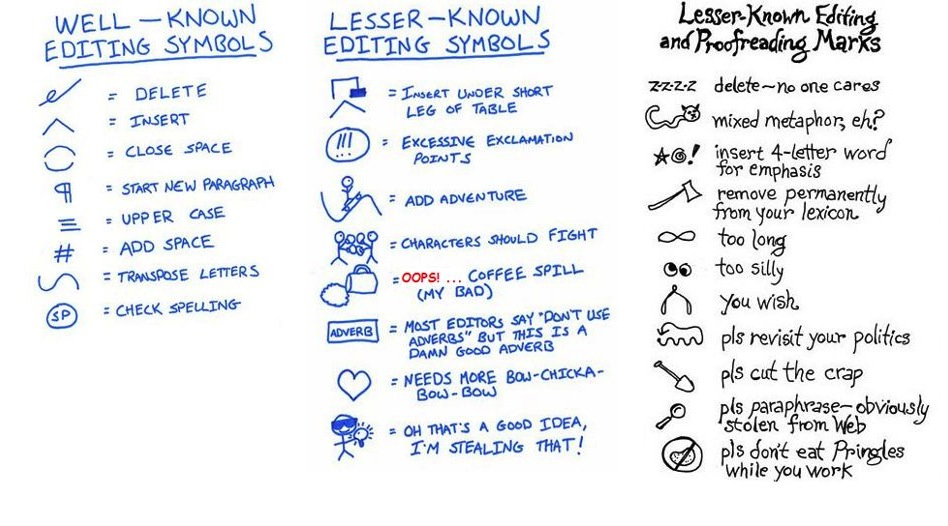 WELL-KNOWN
EDITING SYMBOLS
= DELETE
= INSERT
= CLOSE SPACE
¶ = START NEW PARAGRAPH
= UPPER CASE
# = ADD SPACE
= TRANSPOSE LETTERS
SP = CHECK SPELLING
LESSER-KNOWN
EDITING SYMBOLS
= INSERT UNDER SHORT
LEG OF TABLE
!!! = EXCESSIVE EXCLAMATION
POINTS
= ADD ADVENTURE
= CHARACTERS SHOULD FIGHT
= OOPS! ... COFFEE SPILL
(MY BAD)
ADVERB = MOST EDITORS SAY "DON'T USE
ADVERBS" BUT THIS IS A
DAMN GOOD ADVERB
= NEEDS MORE BOW-CHICKA-
BOW-BOW
= OH THAT'S A GOOD IDEA,
I'M STEALING THAT!
Lesser-Known Editing
and Proofreading Marks
z-z-z-z delete—no one cares
mixed metaphor, eh?
★@! insert 4-letter word
for emphasis
remove permanently
from your lexicon
∞ too long
too silly
you wish
pls revisit your politics
pls cut the crap
pls paraphrase—obviously
stolen from Web
pls don't eat Pringles
while you work